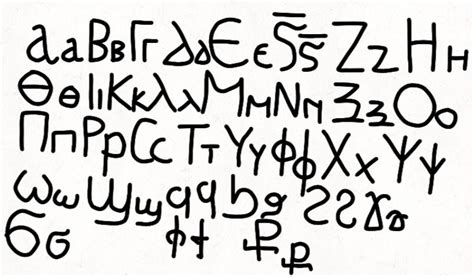 ⲀⲁⲂⲃⲄⲅⲆⲇⲈⲉⲊⲋⲌⲍⲎⲏ
ⲐⲑⲒⲓⲔⲕⲖⲗⲘⲙⲚⲛⲜⲝⲞⲟ
ⲠⲡⲢⲣⲤⲥⲦⲧⲨⲩⲪⲫⲬⲭⲮⲯ
ⲰⲱϢϣϤϥϦϧϨϩϪϫ
Ϭϭ Ϯϯ Ⳁⳁ